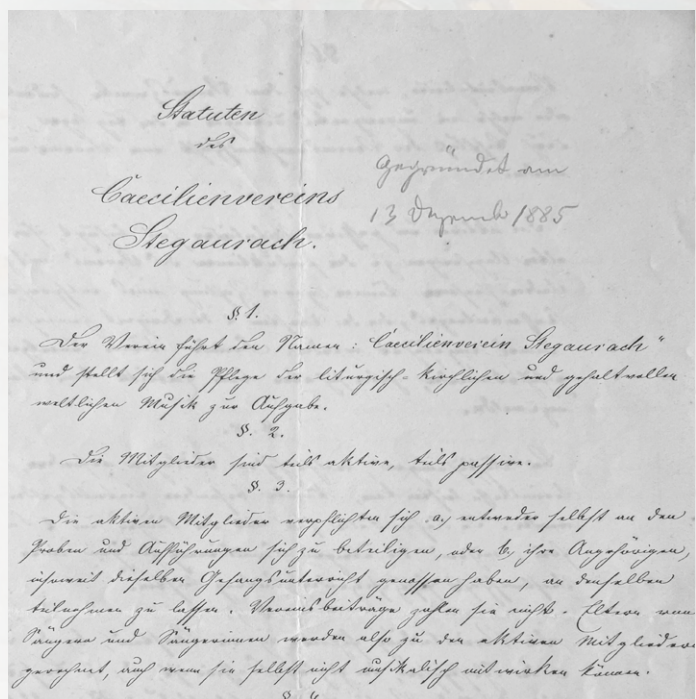 Statuten
des
Caecilienvereins
Stegaurach.
gegründet am
13 Dezemb 1885
§. 1.
Der Verein führt den Namen: "Caecilienverein Stegaurach"
und stellt sich die Pflege der liturgisch-kirchlichen und gehaltvollen
weltlichen Musik zur Aufgabe.
§. 2.
Die Mitglieder sind teils aktive, teils passive.
§. 3.
Die aktiven Mitglieder verpflichten sich a) entweder selbst an den
Proben und Aufführungen sich zu beteiligen, oder b, ihre Angehörigen,
insoweit dieselben Gesangsunterricht genossen haben, an denselben
teilnehmen zu lassen. Vereinsbeiträge zahlen sie nicht. Eltern von
Sängern und Sängerinnen werden also zu den aktiven Mitgliedern
gerechnet, auch wenn sie selbst nicht musikalisch mitwirken können.
§ 4